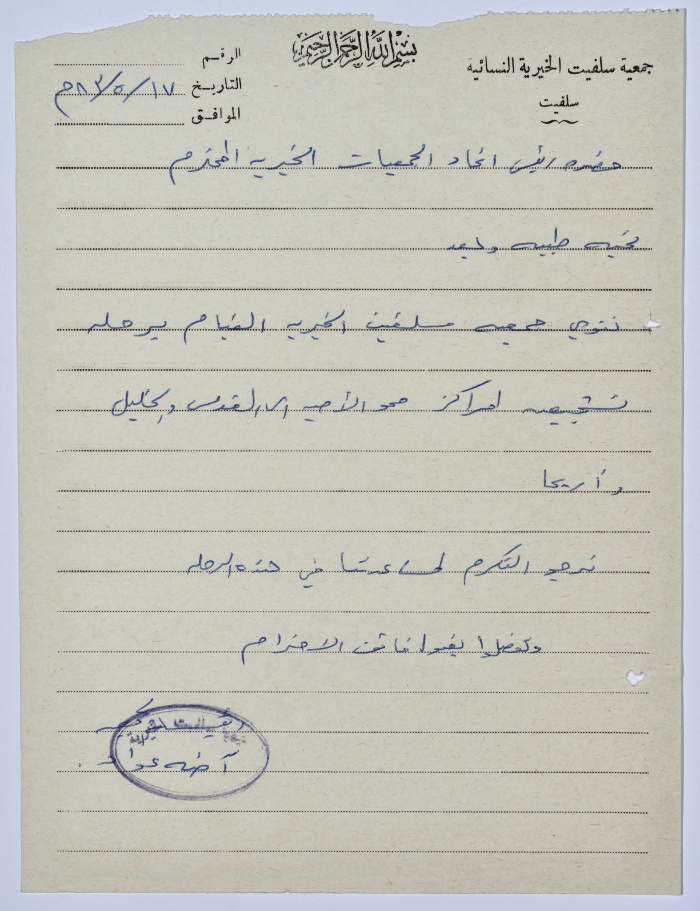 بسم الله الرحمن الرحيم
جمعية سلفيت الخيرية النسائية
سلفيت
الرقم
التاريخ ١٧/٥/٨٣م
الموافق
حضره رئيس اتحاد الجمعيات الخيريه المحترم
تحيه طيبه وبعد
تنوي جمعيه سلفيت الخيريه القيام برحله
تشجيعيه لمراكز محو الأميه الى القدس والخليل
وأريحا
نرجو التكرم لمساعدتنا في هذه الرحله
وتفضلوا بقبول فائق الاحترام